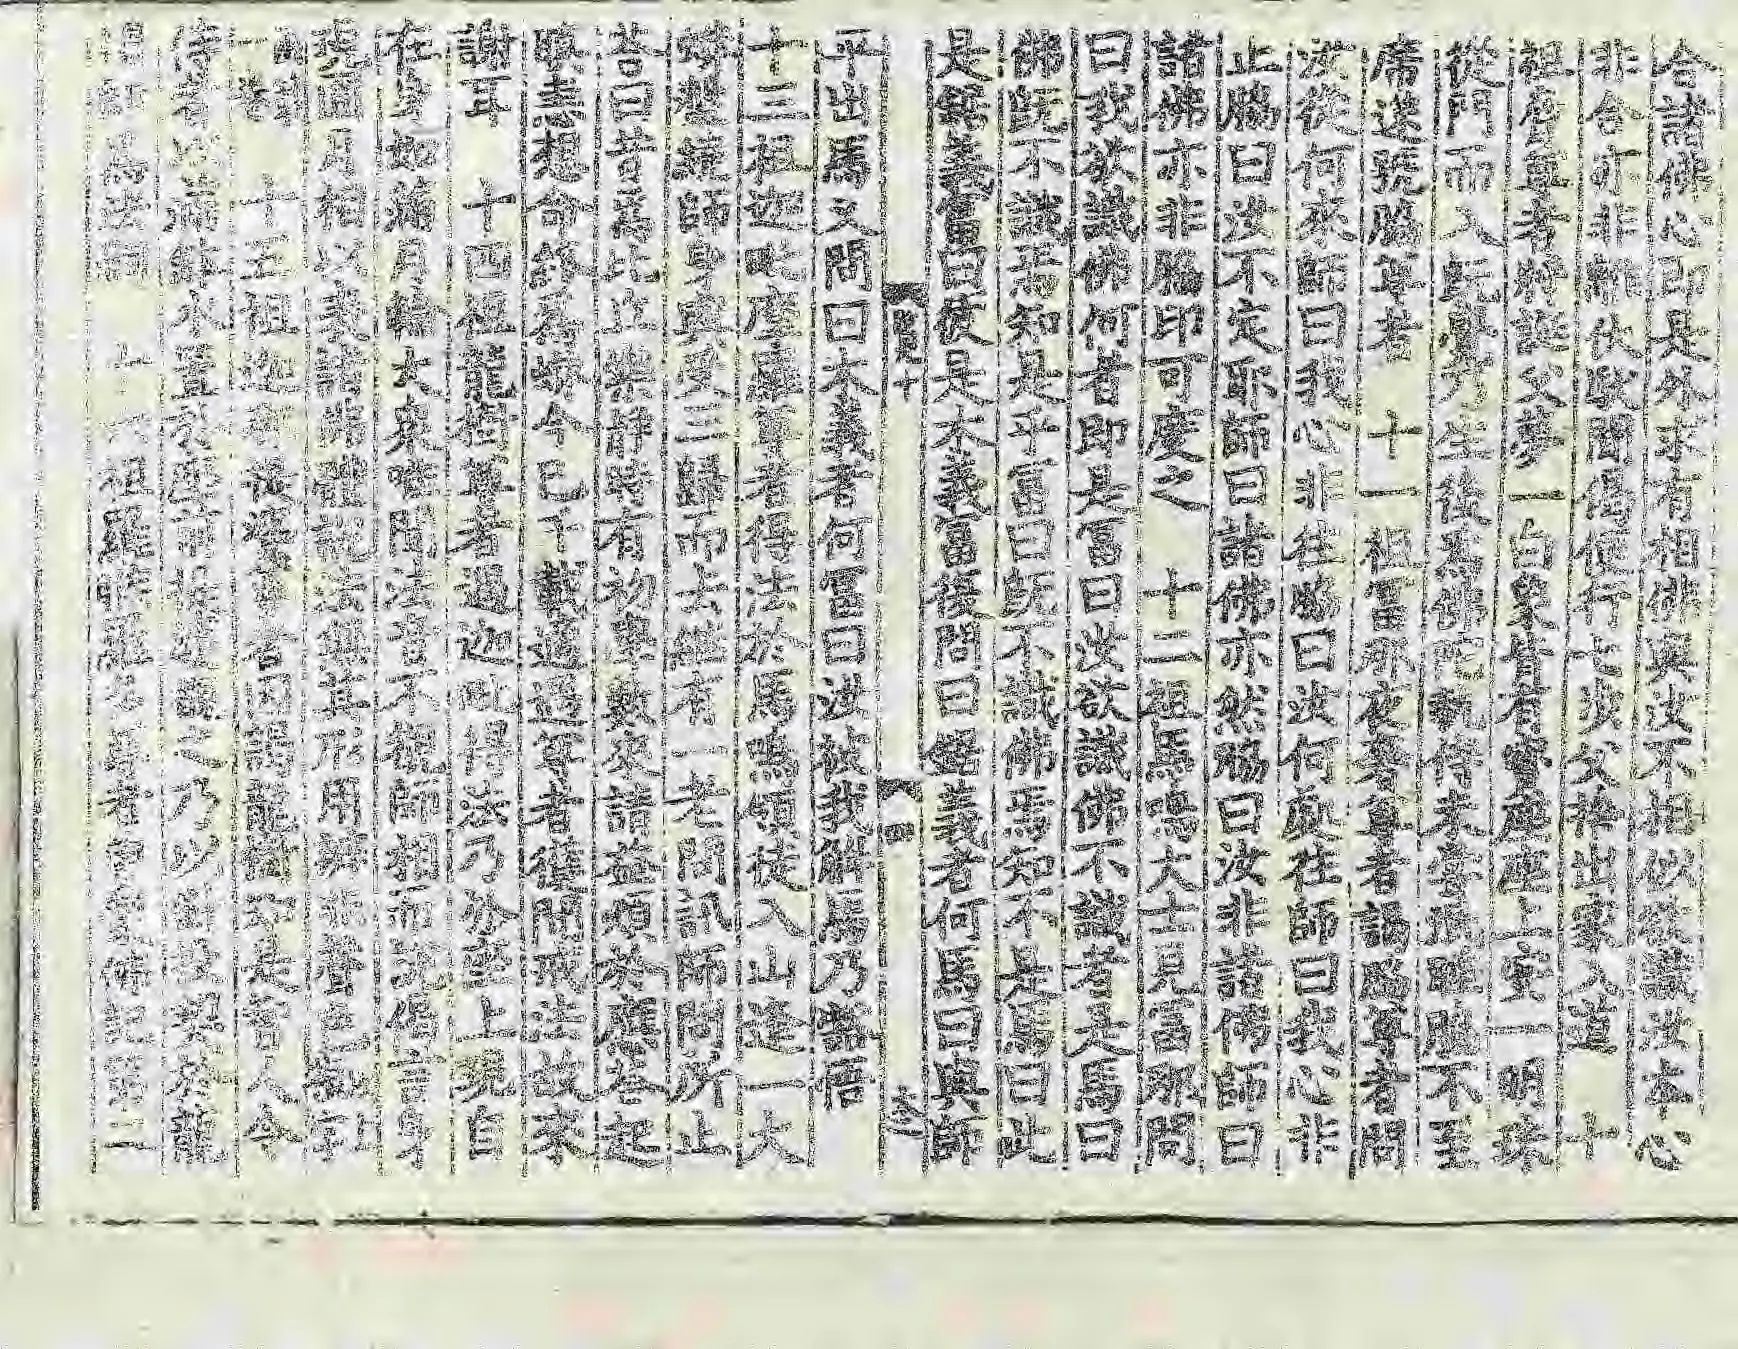 合諸佛心即是外求有相佛與汝不相似欲識汝本心
非合亦非離伏馱聞偈便行七步父捨出家入道　十
祖脇尊者將誕父夢一白象背有寶座座上安一明珠
從門而入既覺乃生後奉佛陀執侍未嘗睡眠脇不至
席遂號脇尊者　十一祖富那夜奢尊者謁脇尊者問
汝從何來師曰我心非往脇曰汝何處住師曰我心非
止脇曰汝不定耶師曰諸佛亦然脇曰汝非諸佛師曰
諸佛亦非脇印可度之　十二祖馬鳴大士見富那問
曰我欲識佛何者即是富曰汝欲識佛不識者是馬曰
佛既不識焉知是乎富曰既不識佛焉知不是馬曰此
是鋸義富曰彼是木義富復問曰鋸義者何馬曰與師
平出馬又問曰木義者何富曰汝被我解馬乃豁悟
十三祖迦毗摩羅尊者得法於馬鳴領徒入山逢一大
蟒盤繞師身與受三歸而去繼有一老問訊師問所止
答曰昔為比丘樂靜時有初學數來請益煩於應答起
瞋恚想命終為蟒今已千載適遇尊者獲聞戒法故來
謝耳　十四祖龍樹尊者遇迦毗得法乃於座上現自
在身如滿月輪大眾唯聞法音不覩師相師說偈言身
現圓月相以表諸佛體說法無其形用辨非聲色
一卷　十五祖迦那提婆尊者因謁龍樹知是智人令
侍者以滿鉢水置於座前提婆覩之乃以針投契於龍
十六祖羅睺羅多尊者